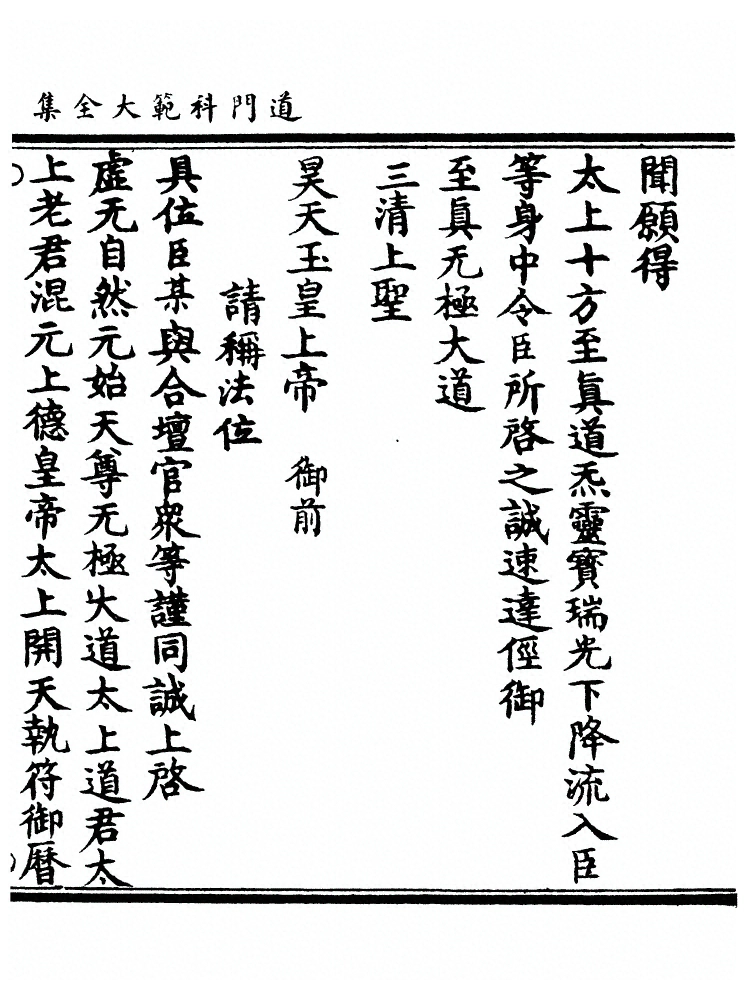 道門科範大全集
聞願得
太上十方至眞道炁靈寳瑞光下降流入臣
等身中令臣所啓之誠速達俓御
至眞无極大道
三清上聖
昊天玉皇上帝　御前
請稱法位
具位臣某與合壇官衆等謹同誠上啓
虛无自然元始天尊无極大道太上道君太
上老君混元上德皇帝太上開天執符御曆